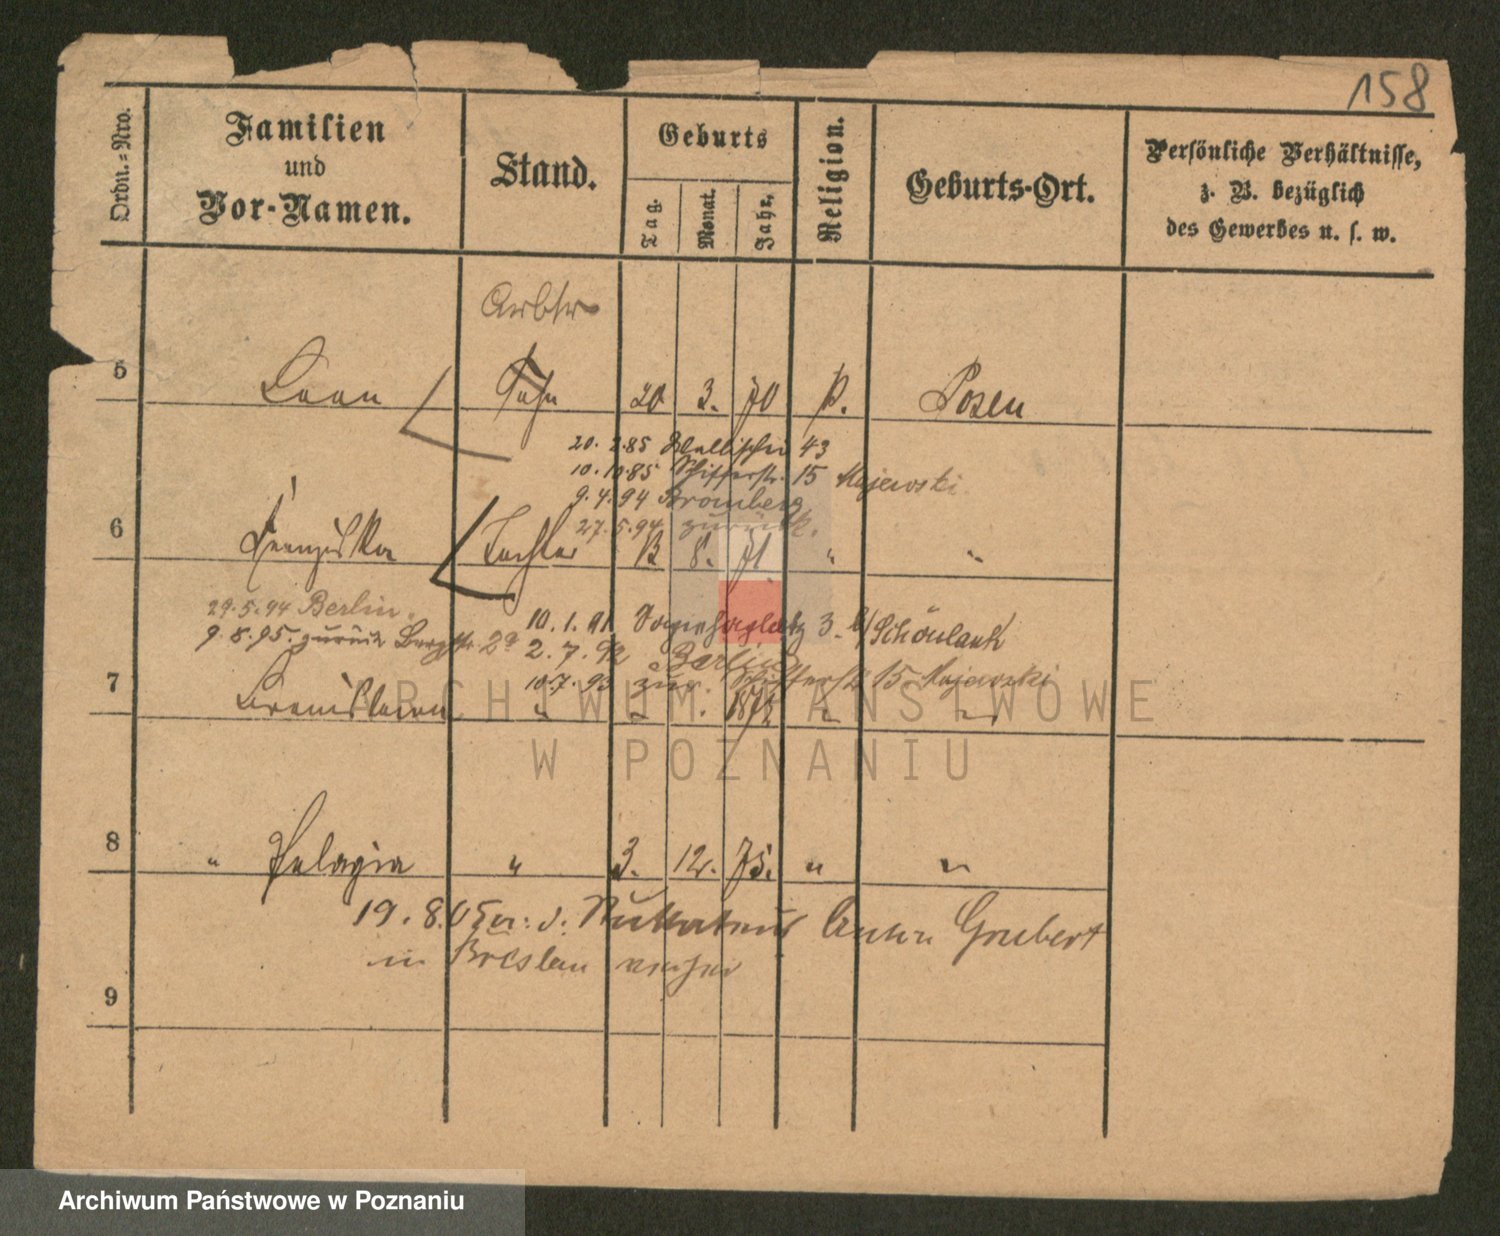 158
Ordn.=Nro.
Familien
und
Vor-Namen.
Stand.
Geburts
Tag.
Monat.
Jahr,
Religion.
Geburts-Ort.
Persönliche Verhältnisse,
z. B. bezüglich
des Gewerbes u. s. w.
Arbtr
5 Leon Sohn 20 3. 70 k. Posen
20. 2.85 43
10.10.85 Schifferstr. 15 Majewski.
9.4.94 Bromberg
27.5.94 zurück.
6 Franziska Tochter 8. 71. " "
29.5.94 Berlin.
9.8.95. zurück Bergstr. 2a
10.1.91 3 b/Schönlank
2.7.92 Berlin
10.7.93 zur. Schifferstr 15 Majewski
7 Bronislawa " " . 1872 " "
8 " Pelagia " 3. 12. 75. " "
19.8.05 Anna Grubert
in Breslau
9
ARCHIWUM PAŃSTWOWE
W POZNANIU
Archiwum Państwowe w Poznaniu